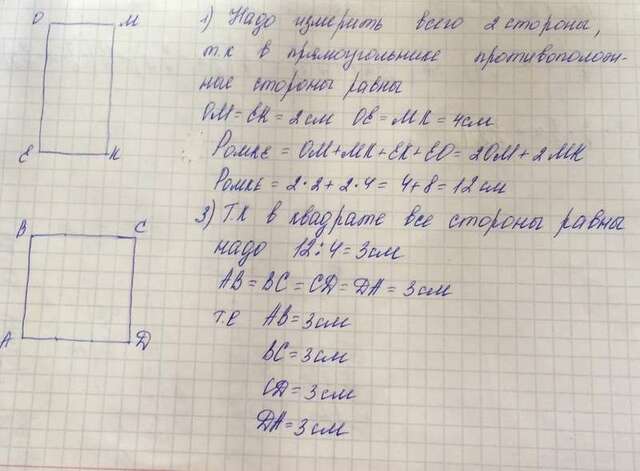 O M
E K
1) Надо измерить всего 2 стороны,
т.к в прямоугольнике противополож-
ные стороны равны
OM = EK = 2 см OE = MK = 4 см
Pомке = OM + MK + EK + EO = 2OM + 2MK
Pомке = 2·2 + 2·4 = 4+8 = 12 см
3) Тк в квадрате все стороны равны
надо 12:4 = 3 см
B C
A D
AB = BC = CD = DA = 3 см
т.е AB = 3 см
BC = 3 см
CD = 3 см
DA = 3 см